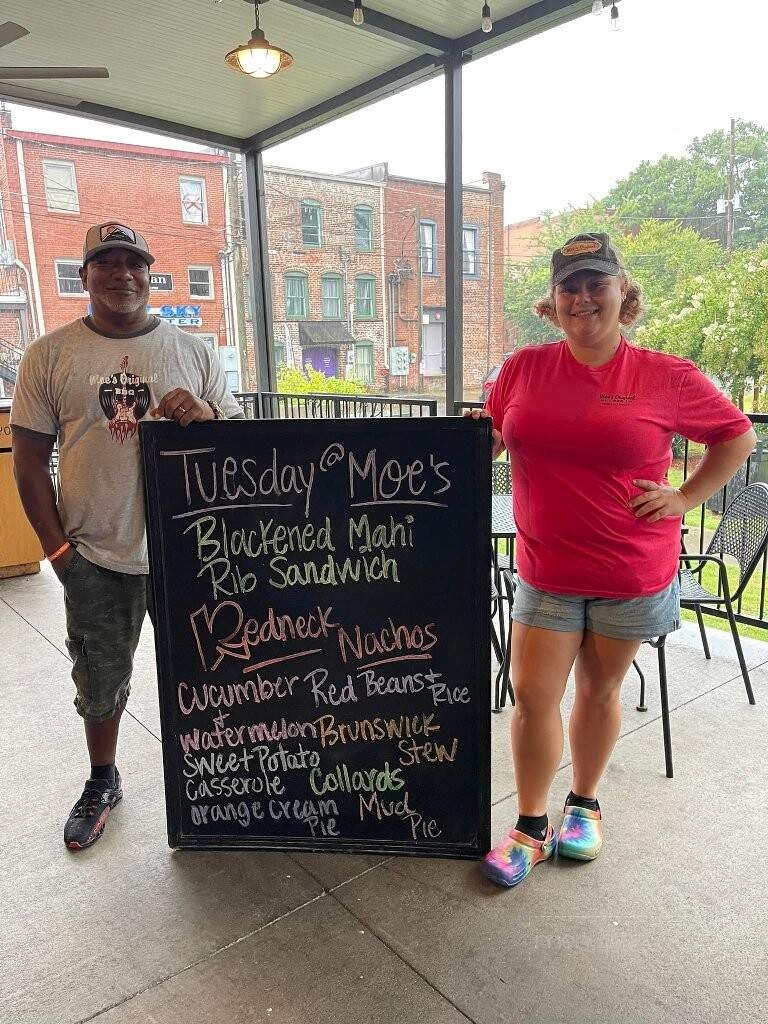 Tuesday @ Moe's
Blackened Mahi
Rib Sandwich
Redneck Nachos
Cucumber
+
Watermelon
Red Beans + Rice
Brunswick
Stew
Sweet Potato
Casserole
Collards
Orange Cream
Pie
Mud
Pie
Moe's Original
BBQ
SKY